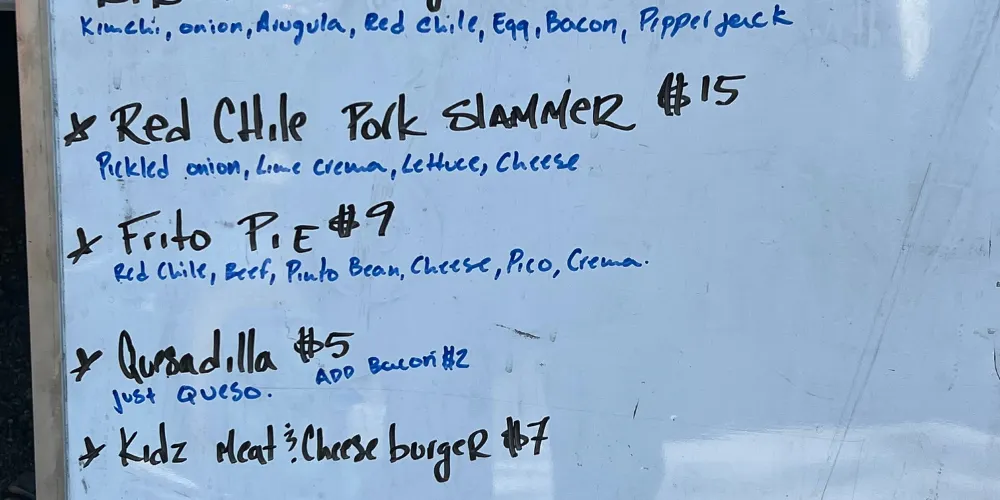 Kimchi, onion, Arugula, Red chile, Egg, Bacon, Pepper jack
Red CHile Pork SLAMMER $15
Pickled onion, Lime crema, Lettuce, Cheese
Frito PiE $9
Red Chile, Beef, Pinto Bean, Cheese, Pico, Crema.
Quesadilla $5
ADD Bacon $2
just QUESO.
Kidz Meat & Cheese burgeR $7